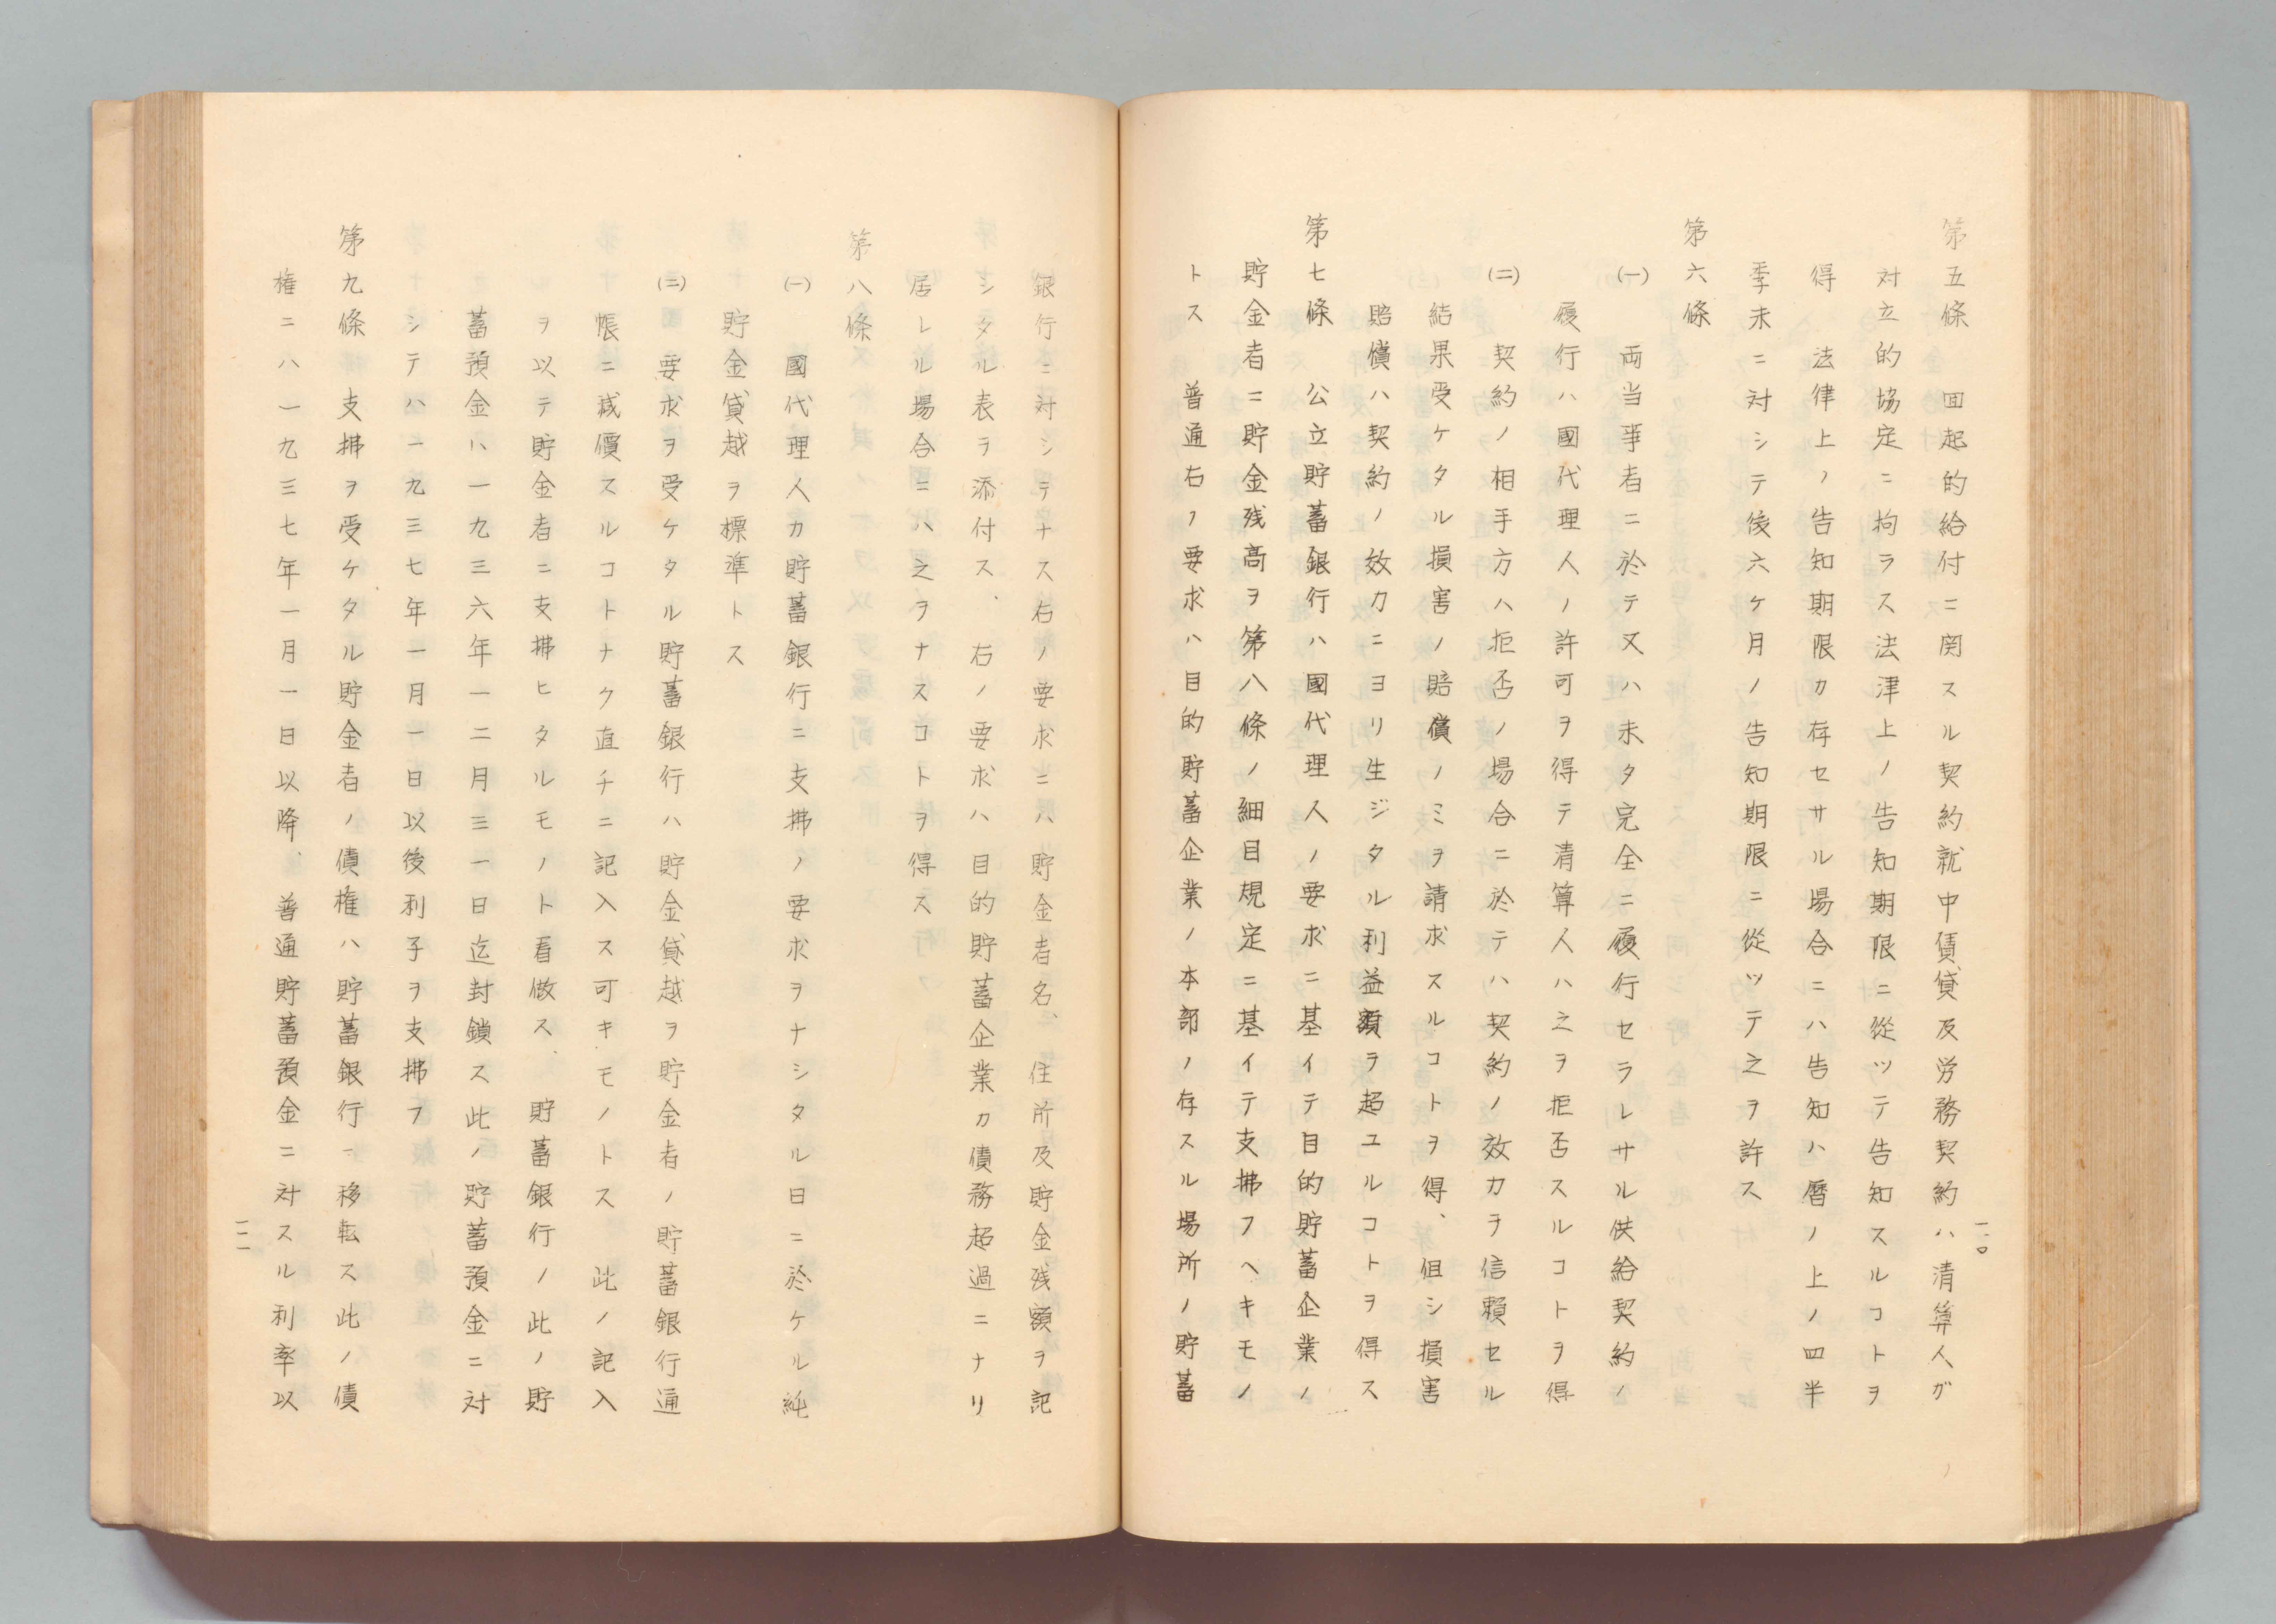 一一〇
第五條　回起的給付ニ関スル契約就中賃貸及労務契約ハ清算人ガ
対立的協定ニ拘ラス法津上ノ告知期限ニ從ツテ告知スルコトヲ
得　法律上ノ告知期限カ存セサル場合ニハ告知ハ暦ノ上ノ四半
季末ニ対シテ後六ケ月ノ告知期限ニ從ツテ之ヲ許ス
第六條
(一)　両当事者ニ於テ又ハ未タ完全ニ履行セラレサル供給契約ノ
履行ハ國代理人ノ許可ヲ得テ清算人ハ之ヲ拒否スルコトヲ得
(二)　契約ノ相手方ハ拒否ノ場合ニ於テハ契約ノ效力ヲ信頼セル
結果受ケタル損害ノ賠償ノミヲ請求スルコトヲ得、但シ損害
賠償ハ契約ノ效力ニヨリ生ジタル利益額ヲ超ユルコトヲ得ス
第七條　公立貯蓄銀行ハ國代理人ノ要求ニ基イテ目的貯蓄企業ノ
貯金者ニ貯金残高ヲ第八條ノ細目規定ニ基イテ支拂フヘキモノ
トス　普通右ノ要求ハ目的貯蓄企業ノ本部ノ存スル場所ノ貯蓄
銀行ニ対シテナス右ノ要求ニハ貯金者名、住所及貯金残額ヲ記
シタル表ヲ添付ス、右ノ要求ハ目的貯蓄企業カ債務超過ニナリ
居レル場合ニハ之ヲナスコトヲ得ス
第八條
(一)　國代理人カ貯蓄銀行ニ支拂ノ要求ヲナシタル日ニ於ケル純
貯金貸越ヲ標準トス
(二)　要求ヲ受ケタル貯蓄銀行ハ貯金貸越ヲ貯金者ノ貯蓄銀行通
帳ニ減價スルコトナク直チニ記入ス可キモノトス　此ノ記入
ヲ以テ貯金者ニ支拂ヒタルモノト看做ス、貯蓄銀行ノ此ノ貯
蓄預金ハ一九三六年一二月三一日迄封鎖ス此ノ貯蓄預金ニ対
シテハ一九三七年一月一日以後利子ヲ支拂フ
第九條　支拂ヲ受ケタル貯金者ノ債権ハ貯蓄銀行ニ移転ス此ノ債
権ニハ一九三七年一月一日以降、普通貯蓄預金ニ対スル利率以
一一一